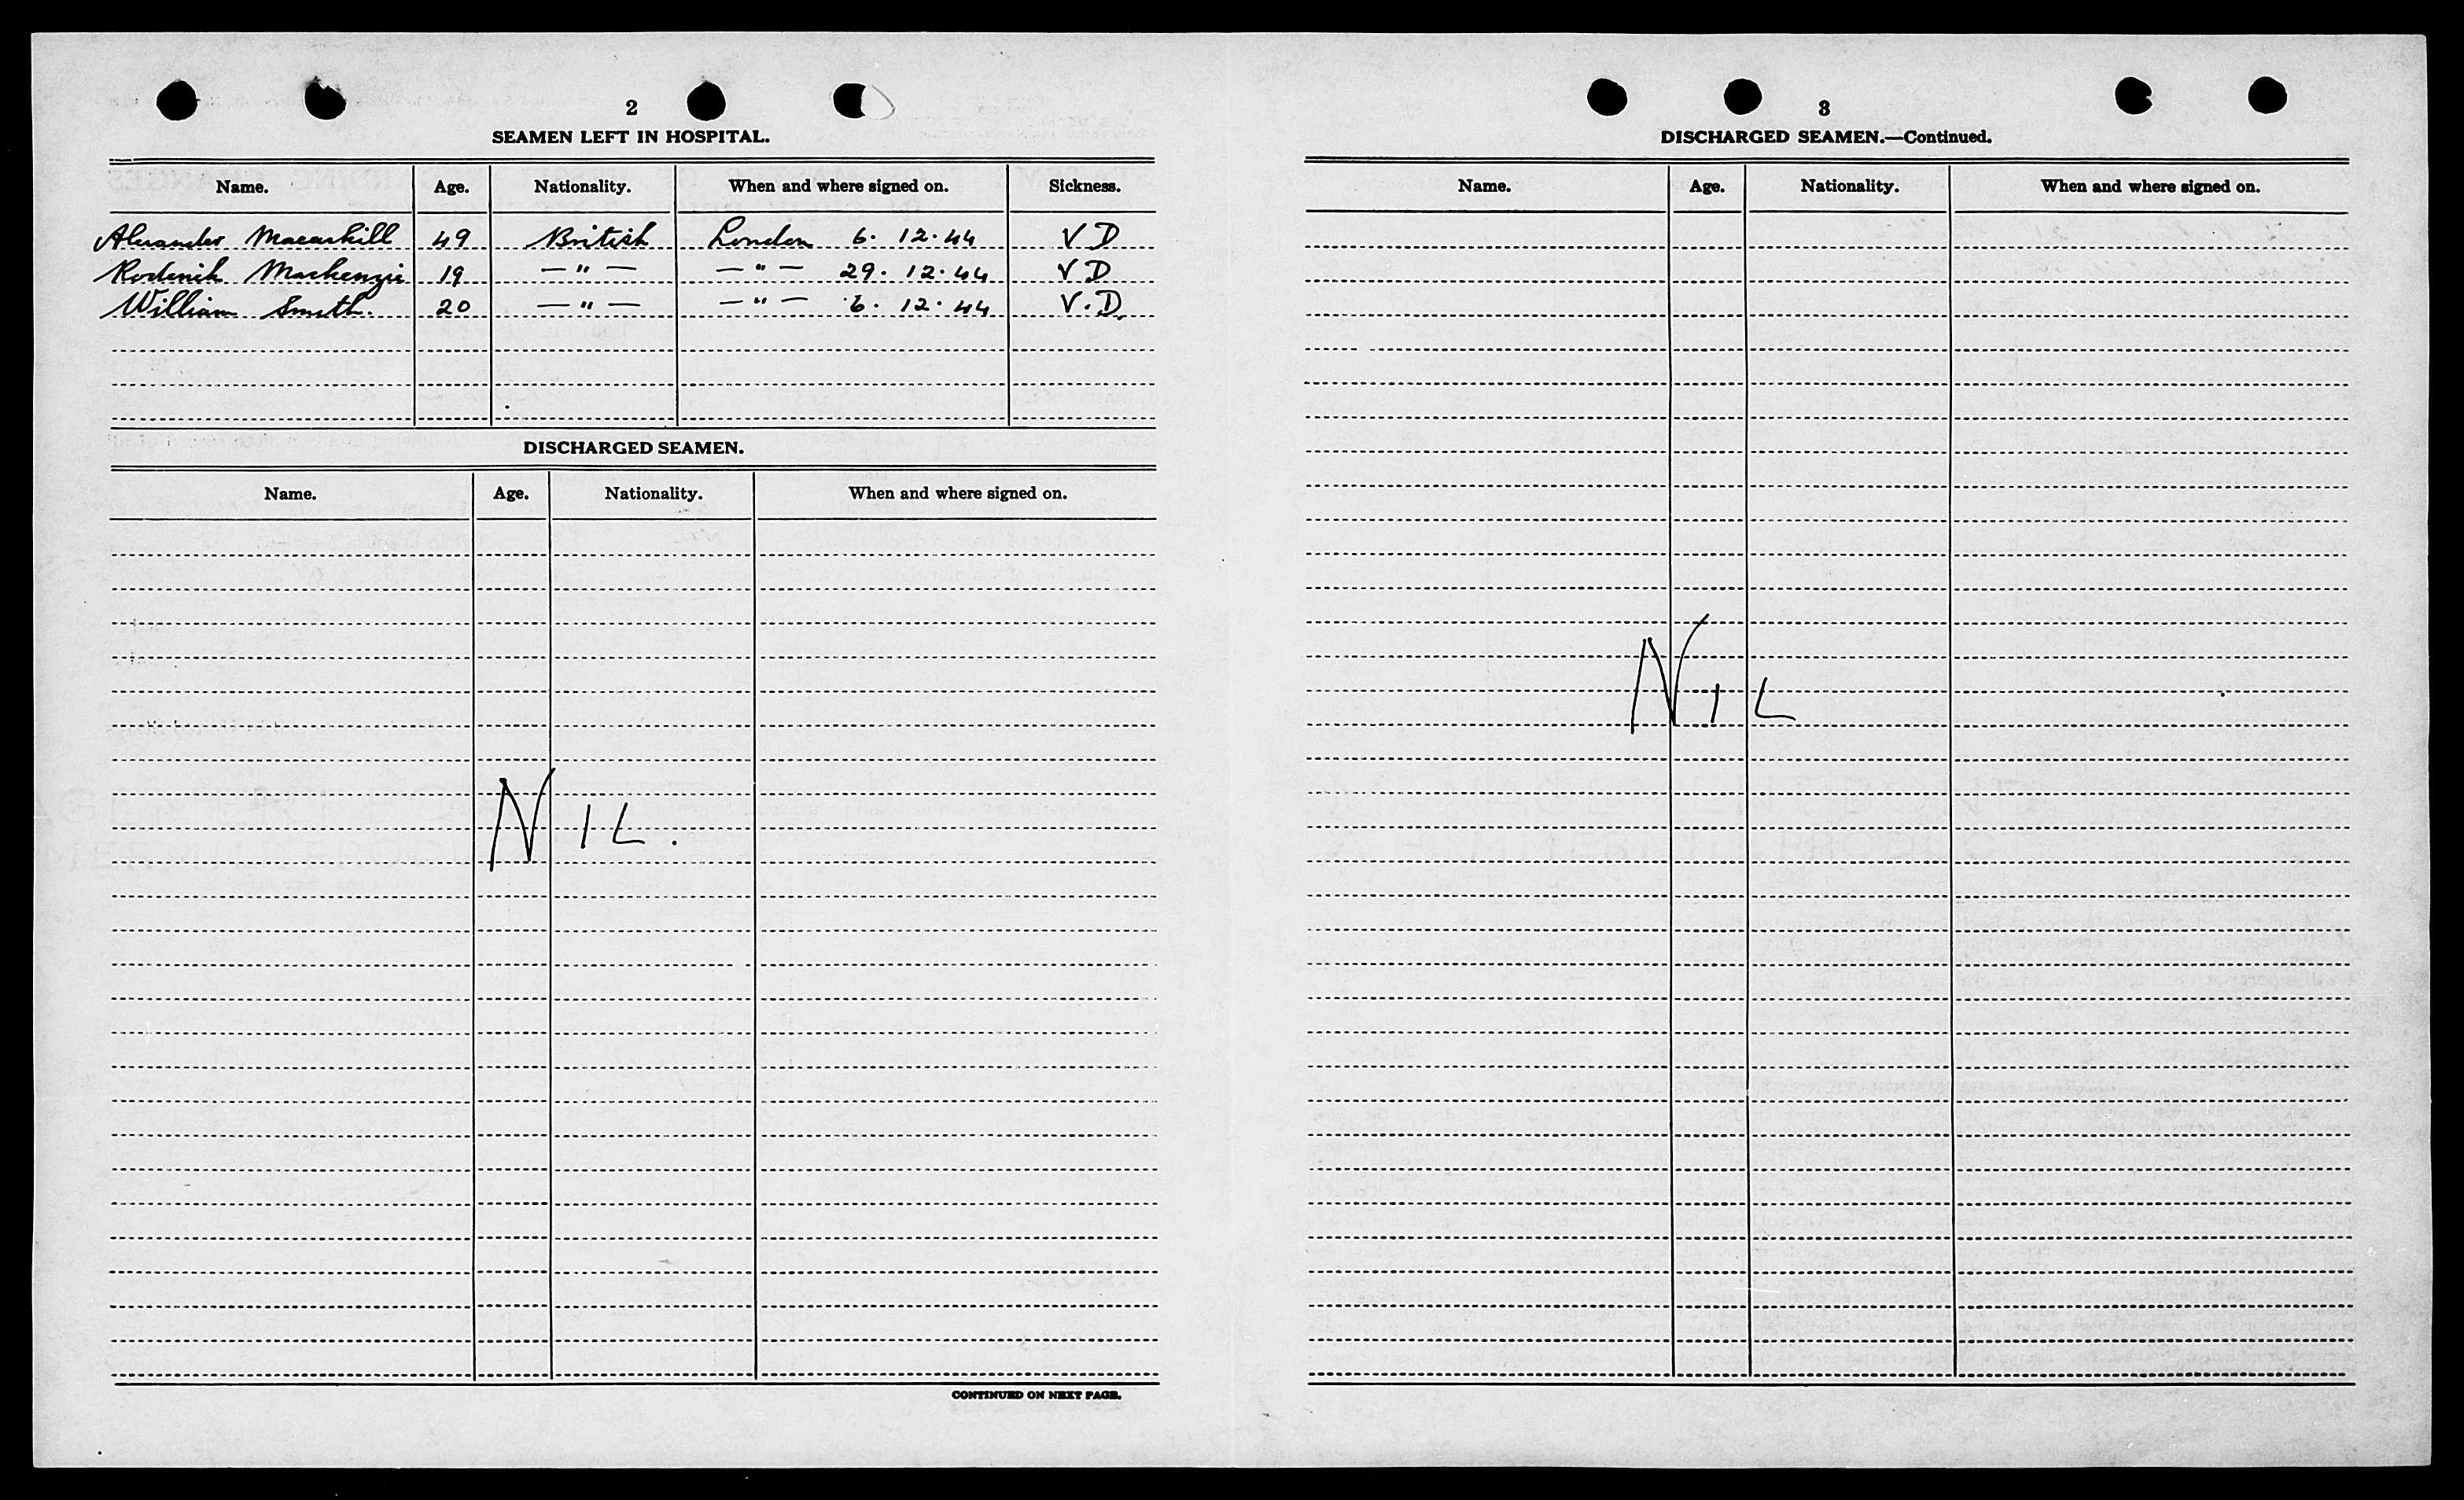 2
SEAMEN LEFT IN HOSPITAL.
Name. Age. Nationality. When and where signed on. Sickness.
Alexander Macaskill 49 British London 6. 12. 44 V D
Roderick Mackenzie 19 — " — — " — 29. 12. 44 V D
William Smith. 20 — " — — " — 6. 12. 44 V. D.
DISCHARGED SEAMEN.
Name. Age. Nationality. When and where signed on.
NIL.
CONTINUED ON NEXT PAGE.
3
DISCHARGED SEAMEN.—Continued.
Name. Age. Nationality. When and where signed on.
NIL